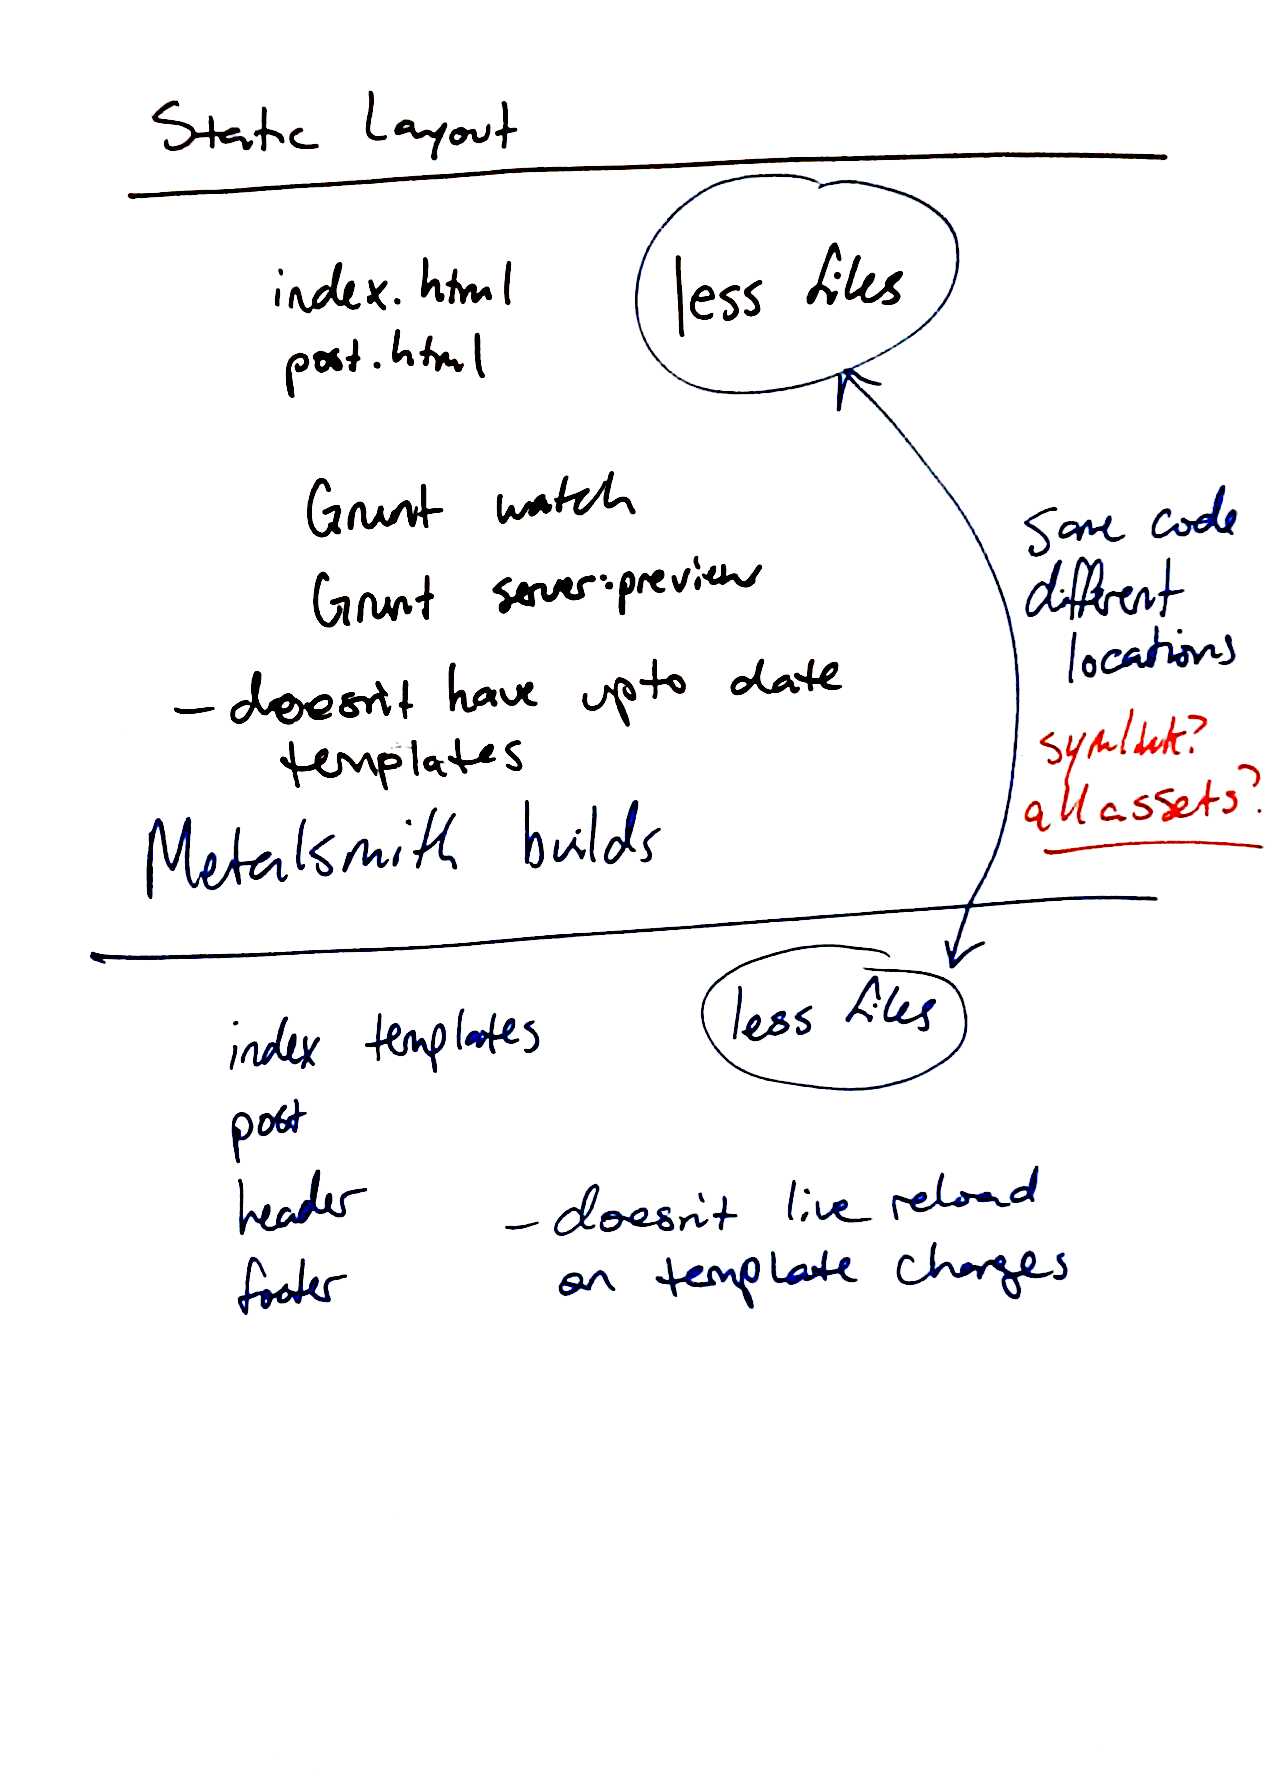 Static Layout
index.html
post.html
less files
Grunt watch
Grunt server:preview
- doesn't have up to date
templates
Same code
different
locations
symlink?
all assets?
Metalsmith builds
index templates
post
header
footer
less files
- doesn't live reload
on template changes